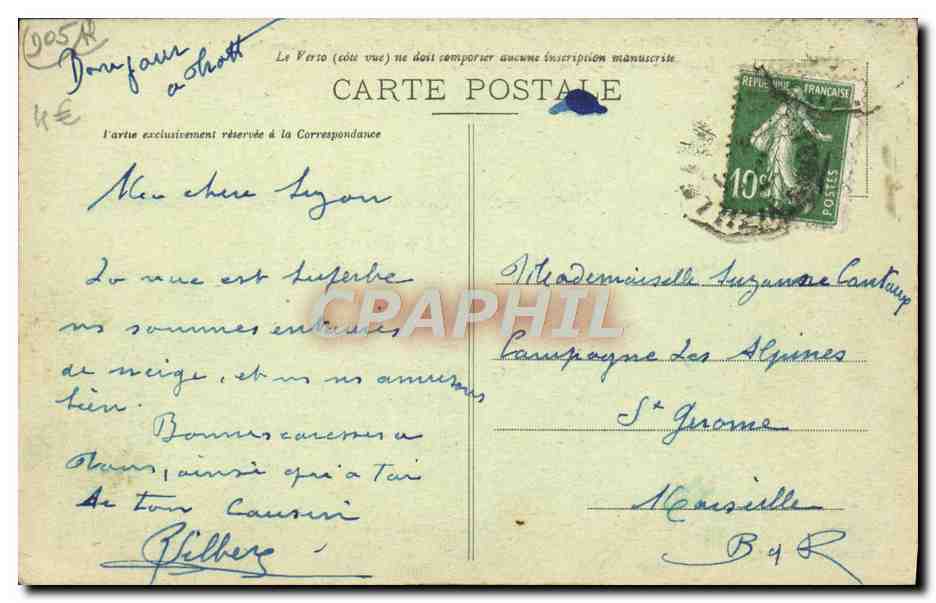 905
4€
Bonjour
a
Le Verso (côté vue) ne doit comporter aucune inscription manuscrite
CARTE POSTALE
Partie exclusivement réservée à la Correspondance
REPUBLIQUE FRANÇAISE
10c
POSTES
Ma chere Suzon
La vue est superbe
ns sommes entourés
de neige, et ns ns amusons
bien.
Bonnes caresses a
tous, ainsi qu'a toi
de ton Cousin
Gilbert
Mademoiselle Suzanne Cantaup
Campagne Les Alpines
St Gerome
Marseille
B d R
CPAPHIL